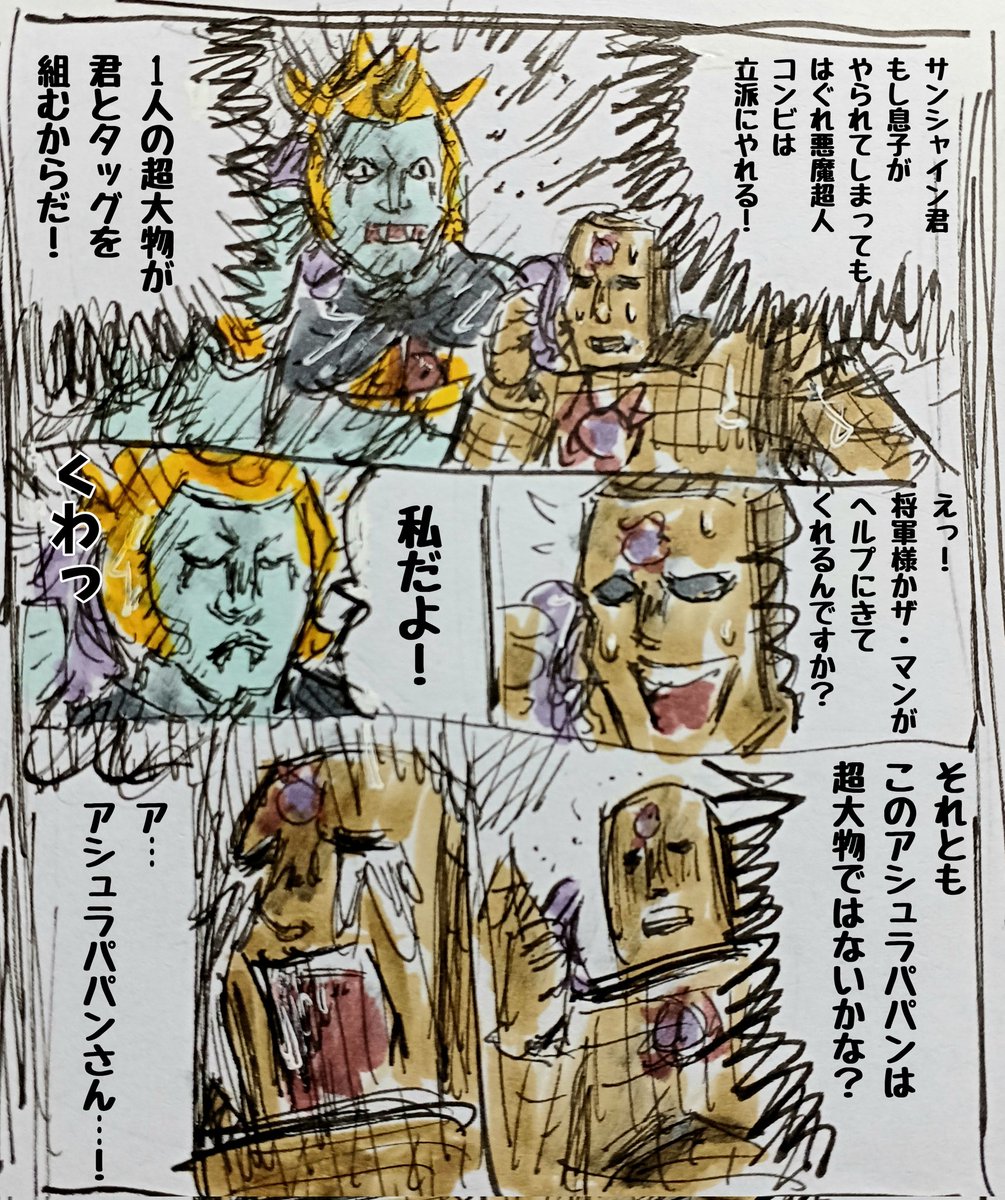 サンシャイン君
もし息子が
やられてしまっても
はぐれ悪魔超人
コンビは
立派にやれる！
1人の超大物が
君とタッグを
組むからだ！
えっ！
将軍様かザ・マンが
ヘルプにきて
くれるんですか？
私だよ！
くわっ
それとも
このアシュラパパンは
超大物ではないかな？
ア…
アシュラパパンさん……！